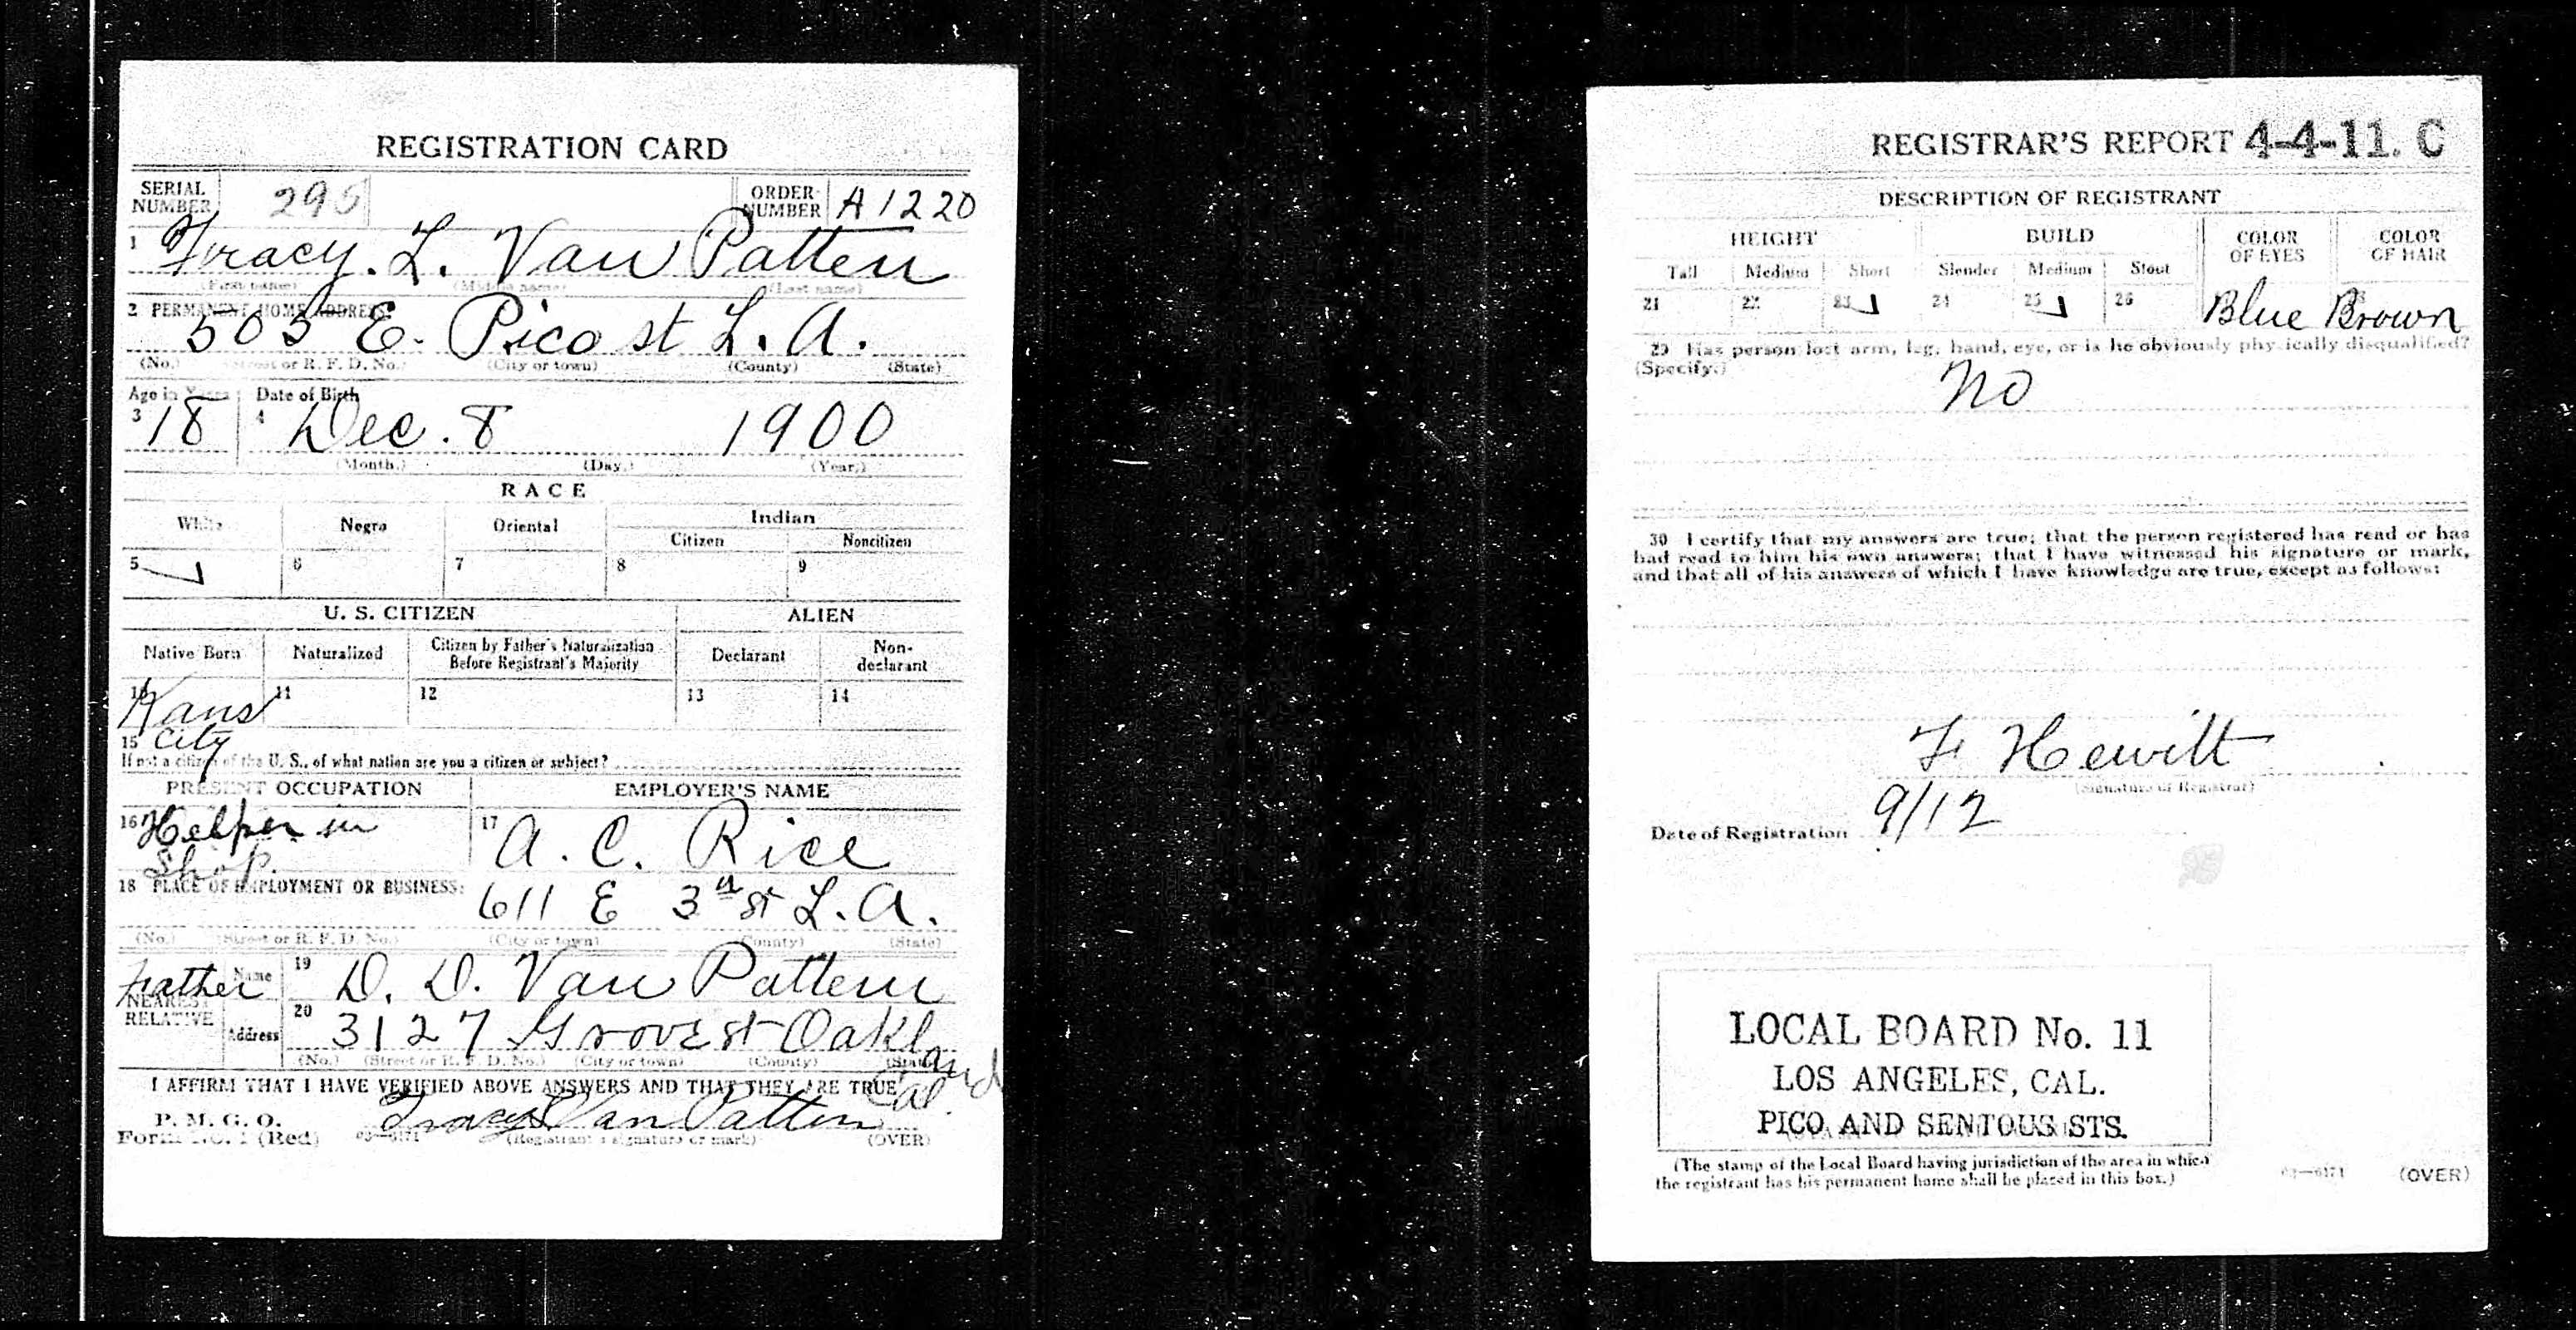 REGISTRATION CARD
SERIAL NUMBER 295 ORDER NUMBER A 1220
1 Tracy. L. Van Patten
(First name) (Middle name) (Last name)
2 PERMANENT HOME ADDRESS
503 E. Pico st L. A.
(No.) (Street or R. F. D. No.) (City or town) (County) (State)
Age in Years Date of Birth
3 18 4 Dec. 8 1900
(Month.) (Day.) (Year.)
RACE
White Negro Oriental Indian
Citizen Noncitizen
5 6 7 8 9
U. S. CITIZEN ALIEN
Native Born Naturalized Citizen by Father's Naturalization Before Registrant's Majority Declarant Non-declarant
10 11 12 13 14
Kans
15 City
If not a citizen of the U. S., of what nation are you a citizen or subject?
PRESENT OCCUPATION EMPLOYER'S NAME
16 Helper in 17 A. C. Rice
Shop.
18 PLACE OF EMPLOYMENT OR BUSINESS:
611 E 3rd st L. A.
(No.) (Street or R. F. D. No.) (City or town) (County) (State)
Father Name 19 D. D. Van Patten
NEAREST RELATIVE
Address 20 3127 Grove st Oakland
Cal.
(No.) (Street or R. F. D. No.) (City or town) (County) (State)
I AFFIRM THAT I HAVE VERIFIED ABOVE ANSWERS AND THAT THEY ARE TRUE
P. M. G. O.
Form No. 1 (Red) 03—6171 Tracy L Van Patten
(Registrant's signature or mark) (OVER)
REGISTRAR'S REPORT 4-4-11. C
DESCRIPTION OF REGISTRANT
HEIGHT BUILD COLOR OF EYES COLOR OF HAIR
Tall Medium Short Slender Medium Stout
21 22 23 24 25 26 Blue Brown
29 Has person lost arm, leg, hand, eye, or is he obviously physically disqualified?
(Specify.)
No
30 I certify that my answers are true; that the person registered has read or has
had read to him his own answers; that I have witnessed his signature or mark,
and that all of his answers of which I have knowledge are true, except as follows:
F Hewitt
(Signature of Registrar)
Date of Registration 9/12
LOCAL BOARD No. 11
LOS ANGELES, CAL.
PICO AND SENTOUS STS.
(The stamp of the Local Board having jurisdiction of the area in which
the registrant has his permanent home shall be placed in this box.)
03—6171 (OVER)